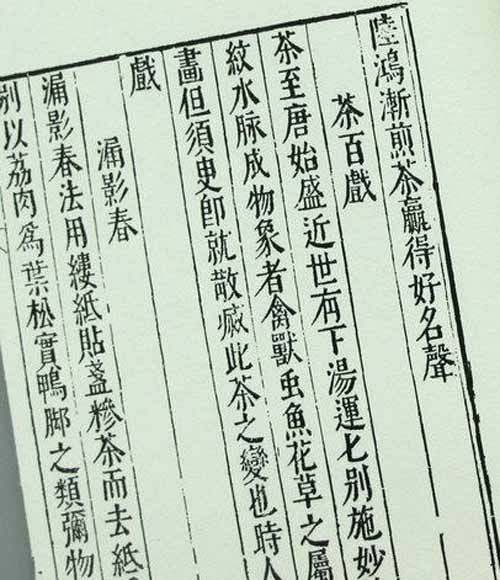 陸鴻漸煎茶贏得好名聲
茶百戲
茶至唐始盛近世有下湯運匕別施妙
紋水脉成物象者禽獸虫魚花草之屬
畫但須臾即就散滅此茶之變也時人
戲
漏影春
漏影春法用縷紙貼盞糝茶而去紙
別以荔肉爲葉松實鴨脚之類彌物